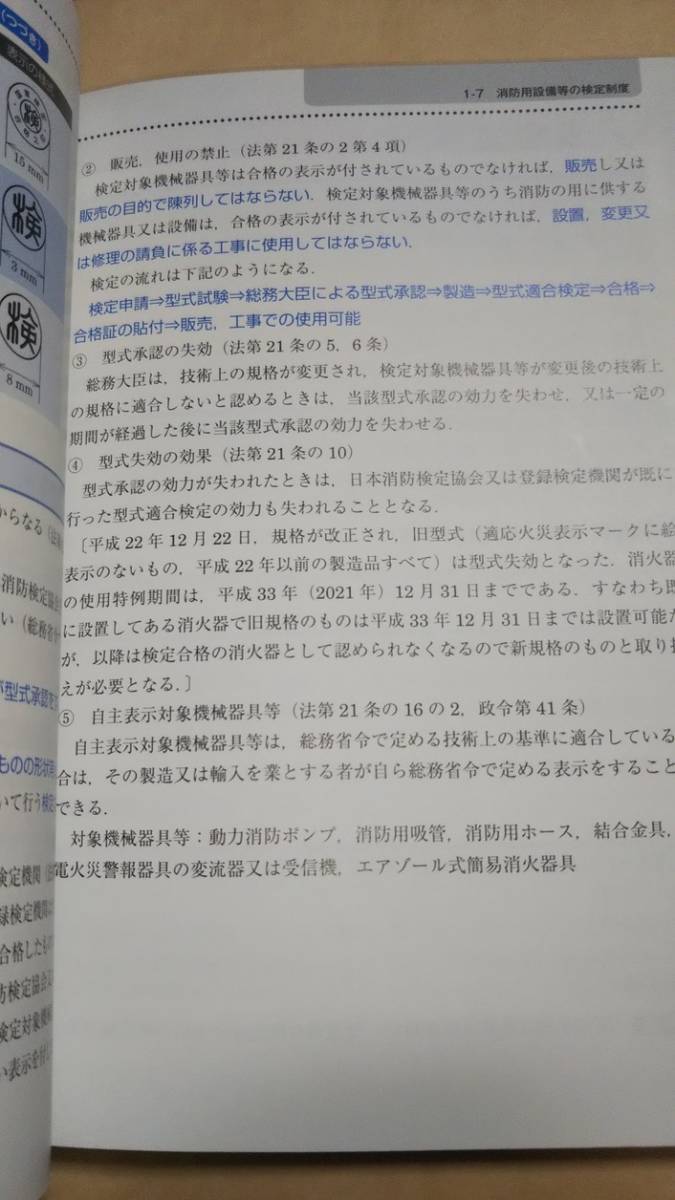 (つづき)
表示の様式
検
15 mm
検
3 mm
検
8 mm
からなる
消防検定協
い（総務省
が型式承認を
ものの形状
いて行う検
検定機関
録検定機関
合格したもの
防検定協会
検定対象機
い表示を付し
1-7 消防用設備等の検定制度
② 販売，使用の禁止（法第21条の2第4項）
検定対象機械器具等は合格の表示が付されているものでなければ，販売し又は
販売の目的で陳列してはならない．検定対象機械器具等のうち消防の用に供する
機械器具又は設備は，合格の表示が付されているものでなければ，設置，変更又
は修理の請負に係る工事に使用してはならない．
検定の流れは下記のようになる．
検定申請⇒型式試験⇒総務大臣による型式承認⇒製造⇒型式適合検定⇒合格⇒
合格証の貼付⇒販売，工事での使用可能
③ 型式承認の失効（法第21条の5，6条）
総務大臣は，技術上の規格が変更され，検定対象機械器具等が変更後の技術上
の規格に適合しないと認めるときは，当該型式承認の効力を失わせ，又は一定の
期間が経過した後に当該型式承認の効力を失わせる．
④ 型式失効の効果（法第21条の10）
型式承認の効力が失われたときは，日本消防検定協会又は登録検定機関が既に
行った型式適合検定の効力も失われることとなる．
〔平成22年12月22日，規格が改正され，旧型式（適応火災表示マークに絵
表示のないもの，平成22年以前の製造品すべて）は型式失効となった．消火器
の使用特例期間は，平成33年（2021年）12月31日までである．すなわち既
に設置してある消火器で旧規格のものは平成33年12月31日までは設置可能だ
が，以降は検定合格の消火器として認められなくなるので新規格のものと取り換
えが必要となる．〕
⑤ 自主表示対象機械器具等（法第21条の16の2，政令第41条）
自主表示対象機械器具等は，総務省令で定める技術上の基準に適合している
合は，その製造又は輸入を業とする者が自ら総務省令で定める表示をすること
できる．
対象機械器具等：動力消防ポンプ，消防用吸管，消防用ホース，結合金具，
電火災警報器具の変流器又は受信機，エアゾール式簡易消火器具